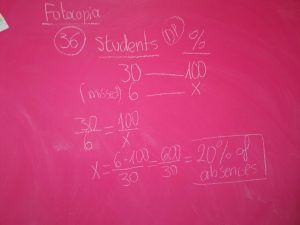 Fotocopia
36 Students %
30 — 100
(missed) 6 — x
30/6 = 100/x
x = 6·100/30 = 600/30 = 20% of
absences